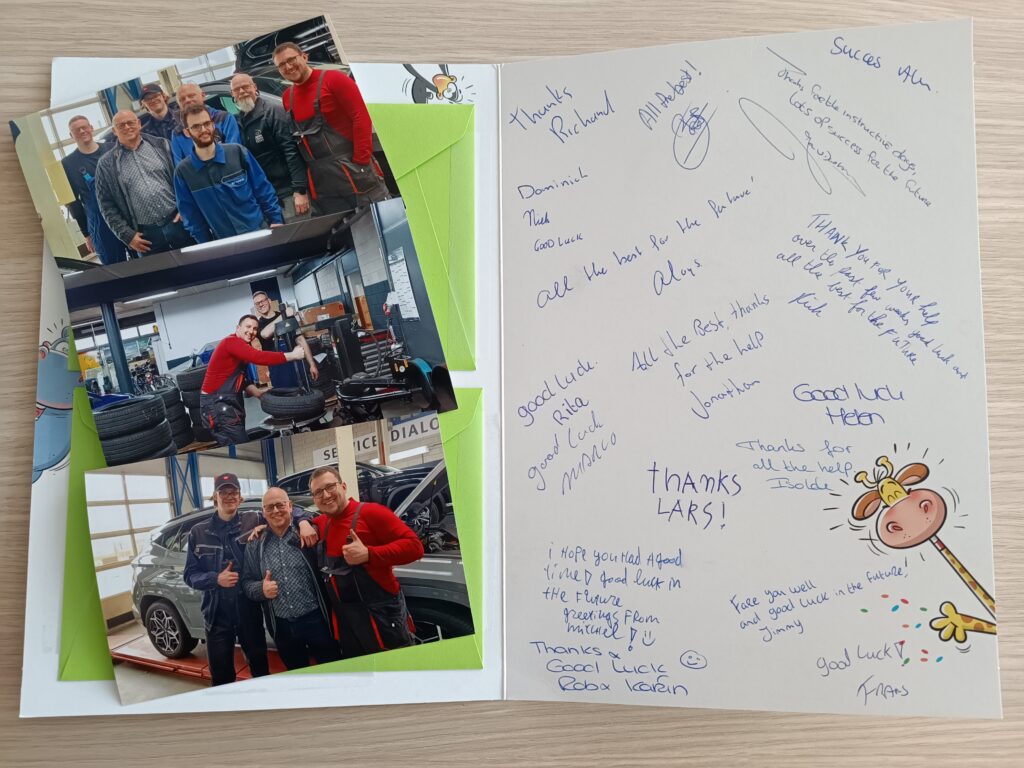 SERVICE DIALO
Succes Alm.
Thanks
Richard
All the best!
Thanks for the instructive days,
Lots of success for the future
Dominick
Nick
GOOD LUCK
all the best for the future!
Aloys
THANK YOU FOR YOUR help
over the past few weeks, good luck and
all the best for the future
Rick
All the Best, thanks
for the help
Jonathan
good luck.
Rita
good luck
MARCO
Good luck
Helen
Thanks for
all the help
Isolde
THANKS
LARS!
i Hope you Had A good
time! good luck in
the Future
greetings From
Mitchel! :)
Fare you well
and good luck in the future!
Jimmy
Thanks &
Good Luck
Rob & Karin
good Luck!
FRANS